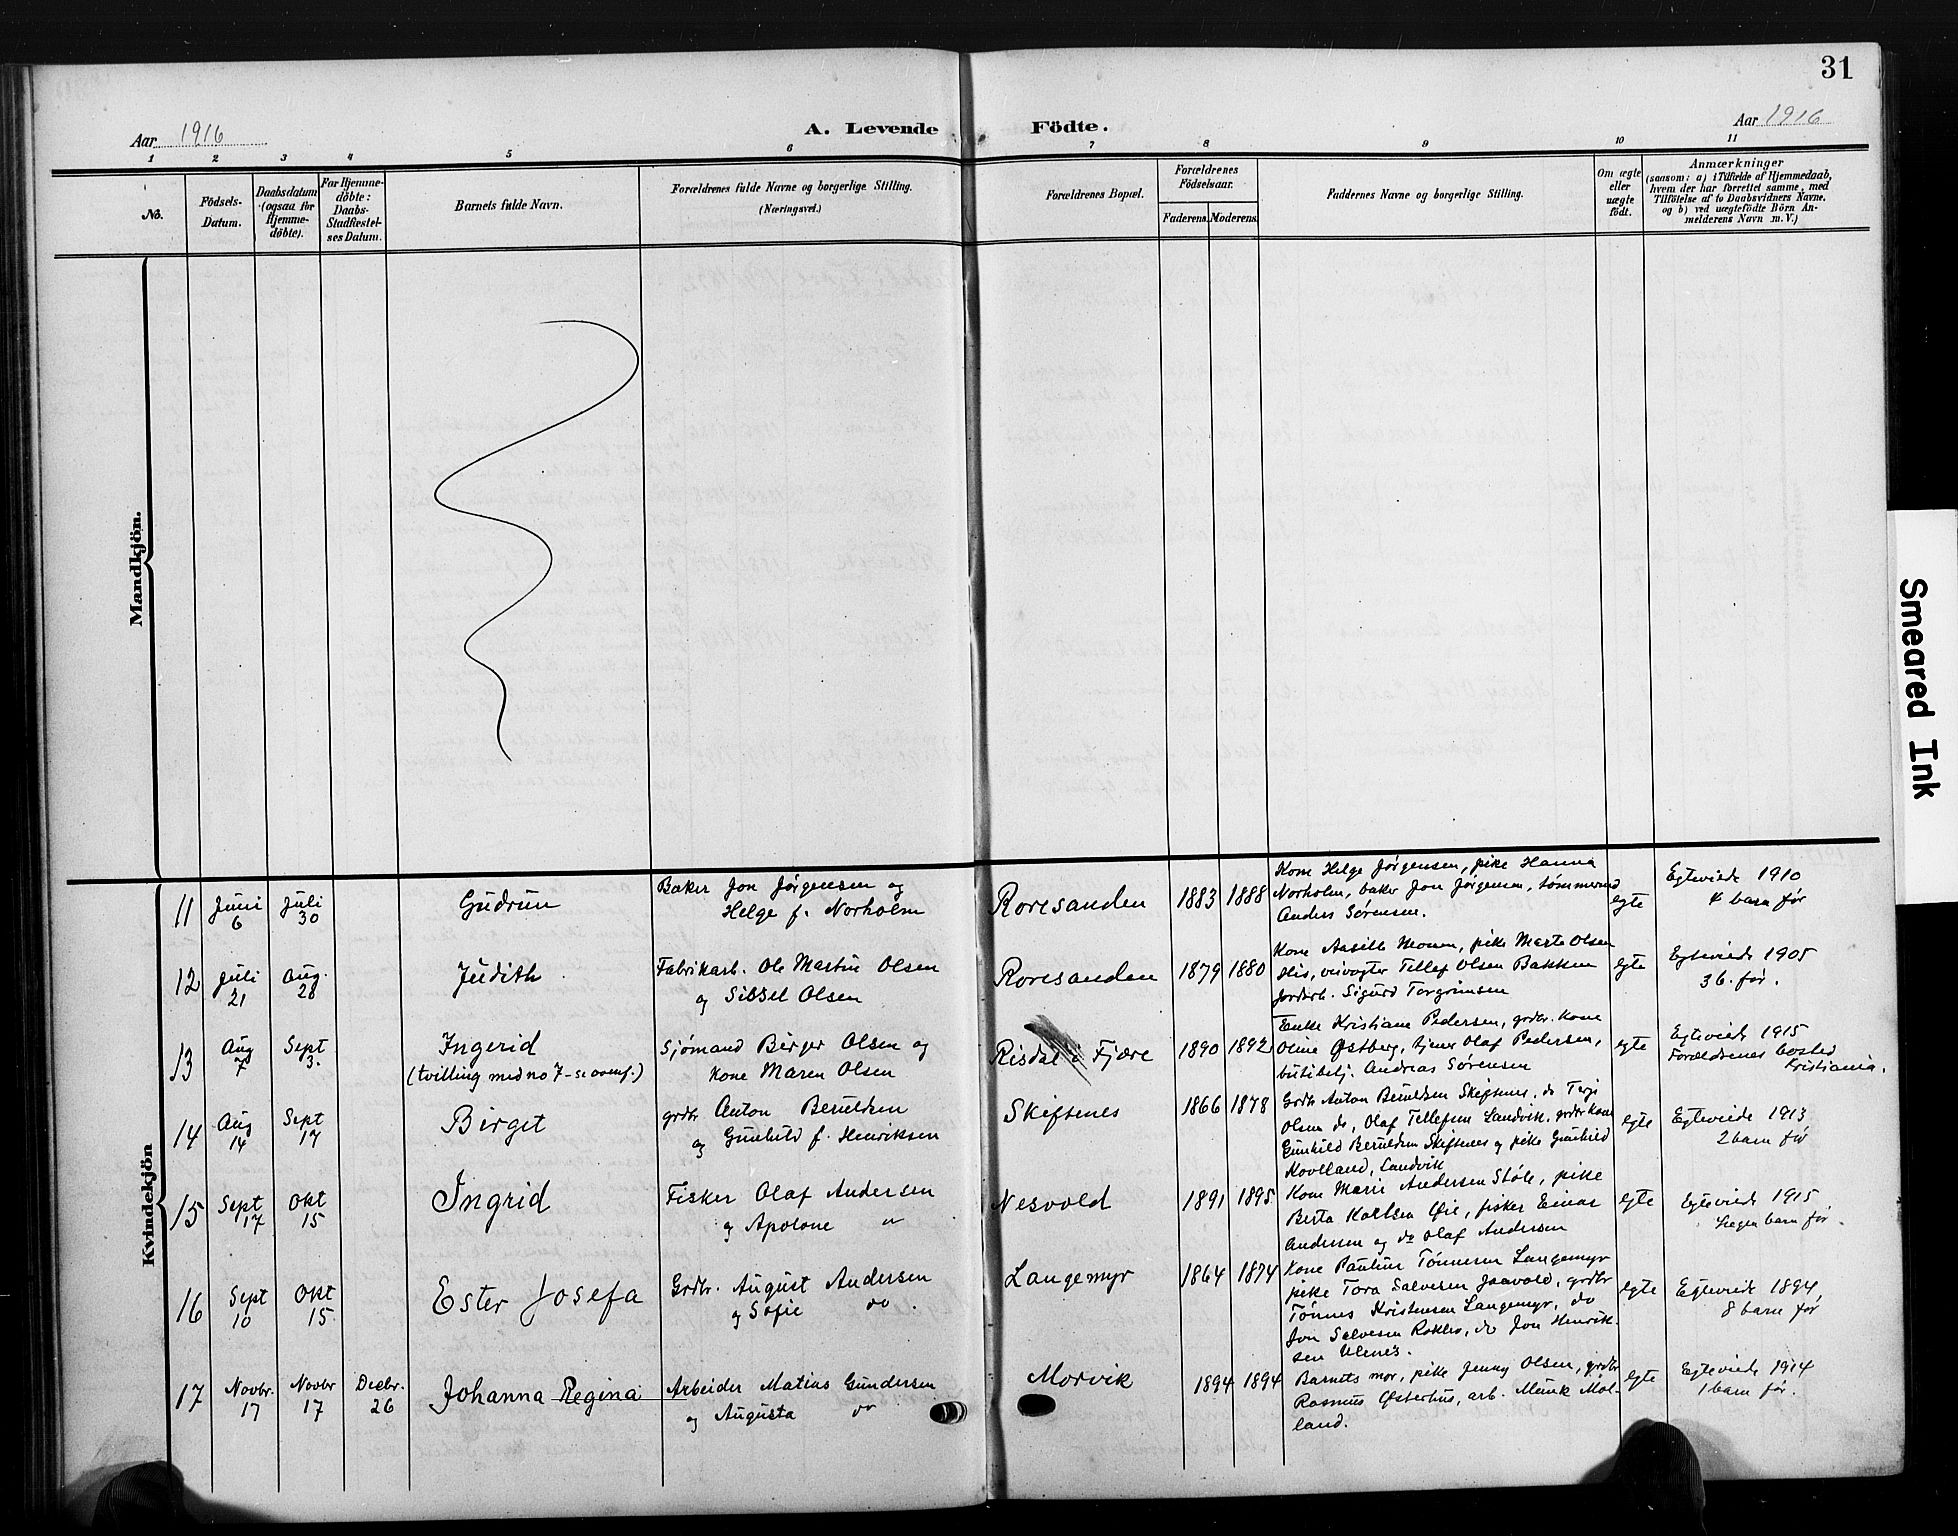 31
Aar 1916
A. Levende Födte.
Aar 1916
1 2 3 4 5 6 7 8 9 10 11
No.
Födsels-
Datum.
Daabsdatum
(ogsaa for
Hjemme-
døbte).
For Hjemme-
döbte:
Daabs-
Stadfæstel-
ses Datum.
Barnets fulde Navn.
Forældrenes fulde Navne og borgerlige Stilling.
(Næringsvei.)
Forældrenes Bopæl.
Forældrenes
Födselsaar.
Faderens. Moderens.
Faddernes Navne og borgerlige Stilling.
Om ægte
eller
uægte
födt.
Anmærkninger
(saasom: a) i Tilfælde af Hjemmedaab,
hvem der har forrettet samme, med
Tilföielse af to Daabsvidners Navne,
og b) ved uægtefödte Börn An-
melderens Navn m. V.)
Mandkjön.
Kvindekjön
11
Juni
6
Juli
30
Gudrun
Baker Jon Jørgensen og
Helge f. Norholm
Roresanden
1883 1888
Kone Helge Jørgensen, pike Hanna
Norholm, baker Jon Jørgensen, tømmermd
Anders Sørensen.
egte
Egteviede 1910
4 barn før
12
Juli
21
Aug.
28
Judith
Fabrikarb. Ole Martin Olsen
og Sissel Olsen
Roresanden
1879 1880
Kone Aasille Monen, pike Marte Olsen
His, veivogter Tellef Olsen Bakken
Jordarb. Sigurd Torgrimsen
egte
Egteviede 1905
3 b. før.
13
Aug
7
Sept
3.
Ingerid
(tvilling med no 7 - se ovenf.)
Sjømand Birger Olsen og
Kone Maren Olsen
Risdal i Fjære
1890 1892
Enke Kristiane Pedersen, grdbr. kone
Oline Østberg, tjener Olaf Pedersen,
butikbetj. Andreas Sørensen
egte
Egteviede 1915
Forældrenes bosted
Kristiania.
14
Aug
14
Sept
17
Birget
grdbr Anton Beruldsen
og Gunhild f. Henriksen
Skiftenes
1866 1878
Grdb Anton Beruldsen Skiftenes, do Terje
Olsen do, Olaf Tellefsen Landvik, grdbr kone
Gunhild Beruldsen Skiftenes og pike Gunhild
Hovland, Landvik
egte
Egteviede 1913
2 barn før
15
Sept
17
Okt
15
Ingrid
Fisker Olaf Andersen
og Apolone "
Nesvold
1891 1895
Kone Marie Andersen Støle, pike
Berta Karlsen Øie, fisker Einar
Andersen og do Olaf Andersen
egte
Egteviede 1915
Ingen barn før.
16
Sept
10
Okt
15.
Ester Josefa
Grdbr. August Andersen
og Sofie do.
Langemyr
1864 1874
Kone Pauline Tønnesen Langemyr
pike Tora Salvesen Jaavold, grdbr
Tønnes Kristensen Langemyr, do
Jon Salvesen, do Jon Henrik-
sen Ulenes.
egte
Egteviede 1894,
8 barn før
17
Novbr.
17
Novbr
17
Decbr.
26
Johanna Regina
Arbeider Matias Gundersen
og Augusta do
Morvik
1894 1894
Barnets mor, pike Jenny Olsen, grdbr
Rasmus Østerhus, arb. Munk Møl-
land.
egte
Egteviede 1914
1 barn før.
Smeared Ink